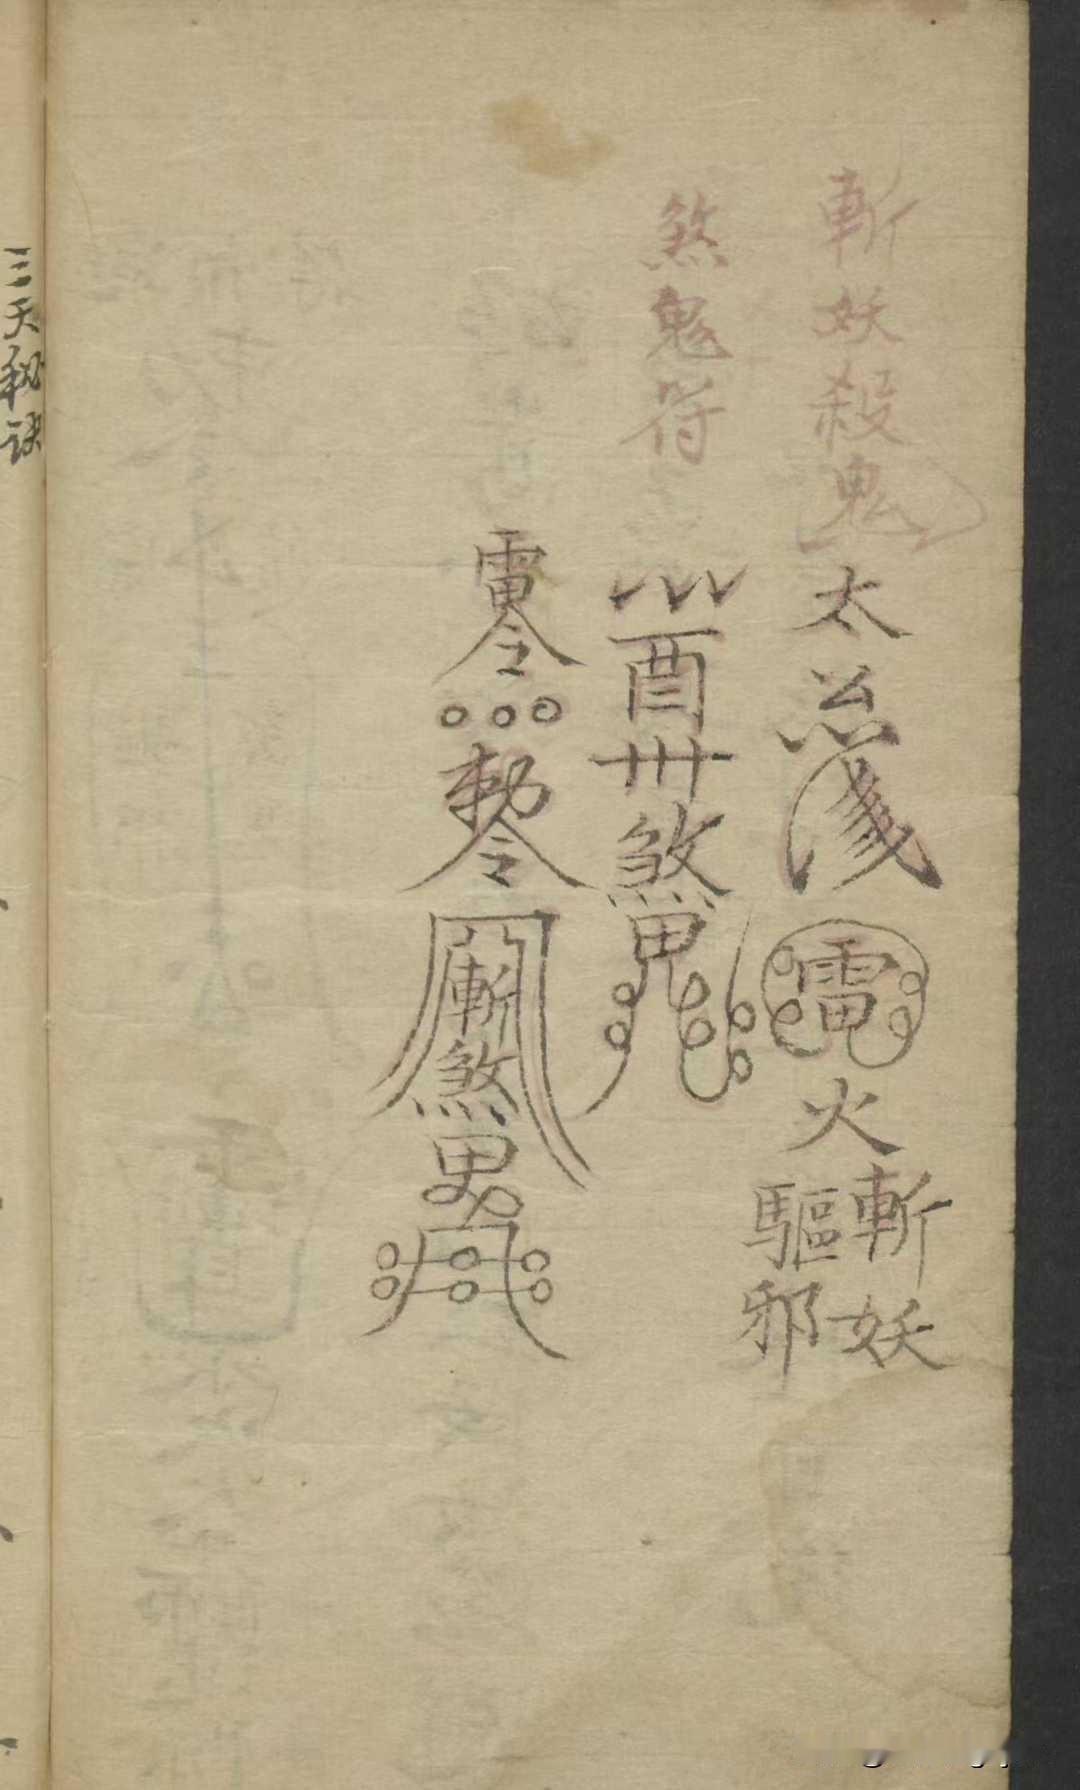 斬妖殺鬼
太
雷
火
斬妖
驅邪
煞鬼符
酉
卅
煞鬼
雷令
敕令
斬煞
三天秘诀